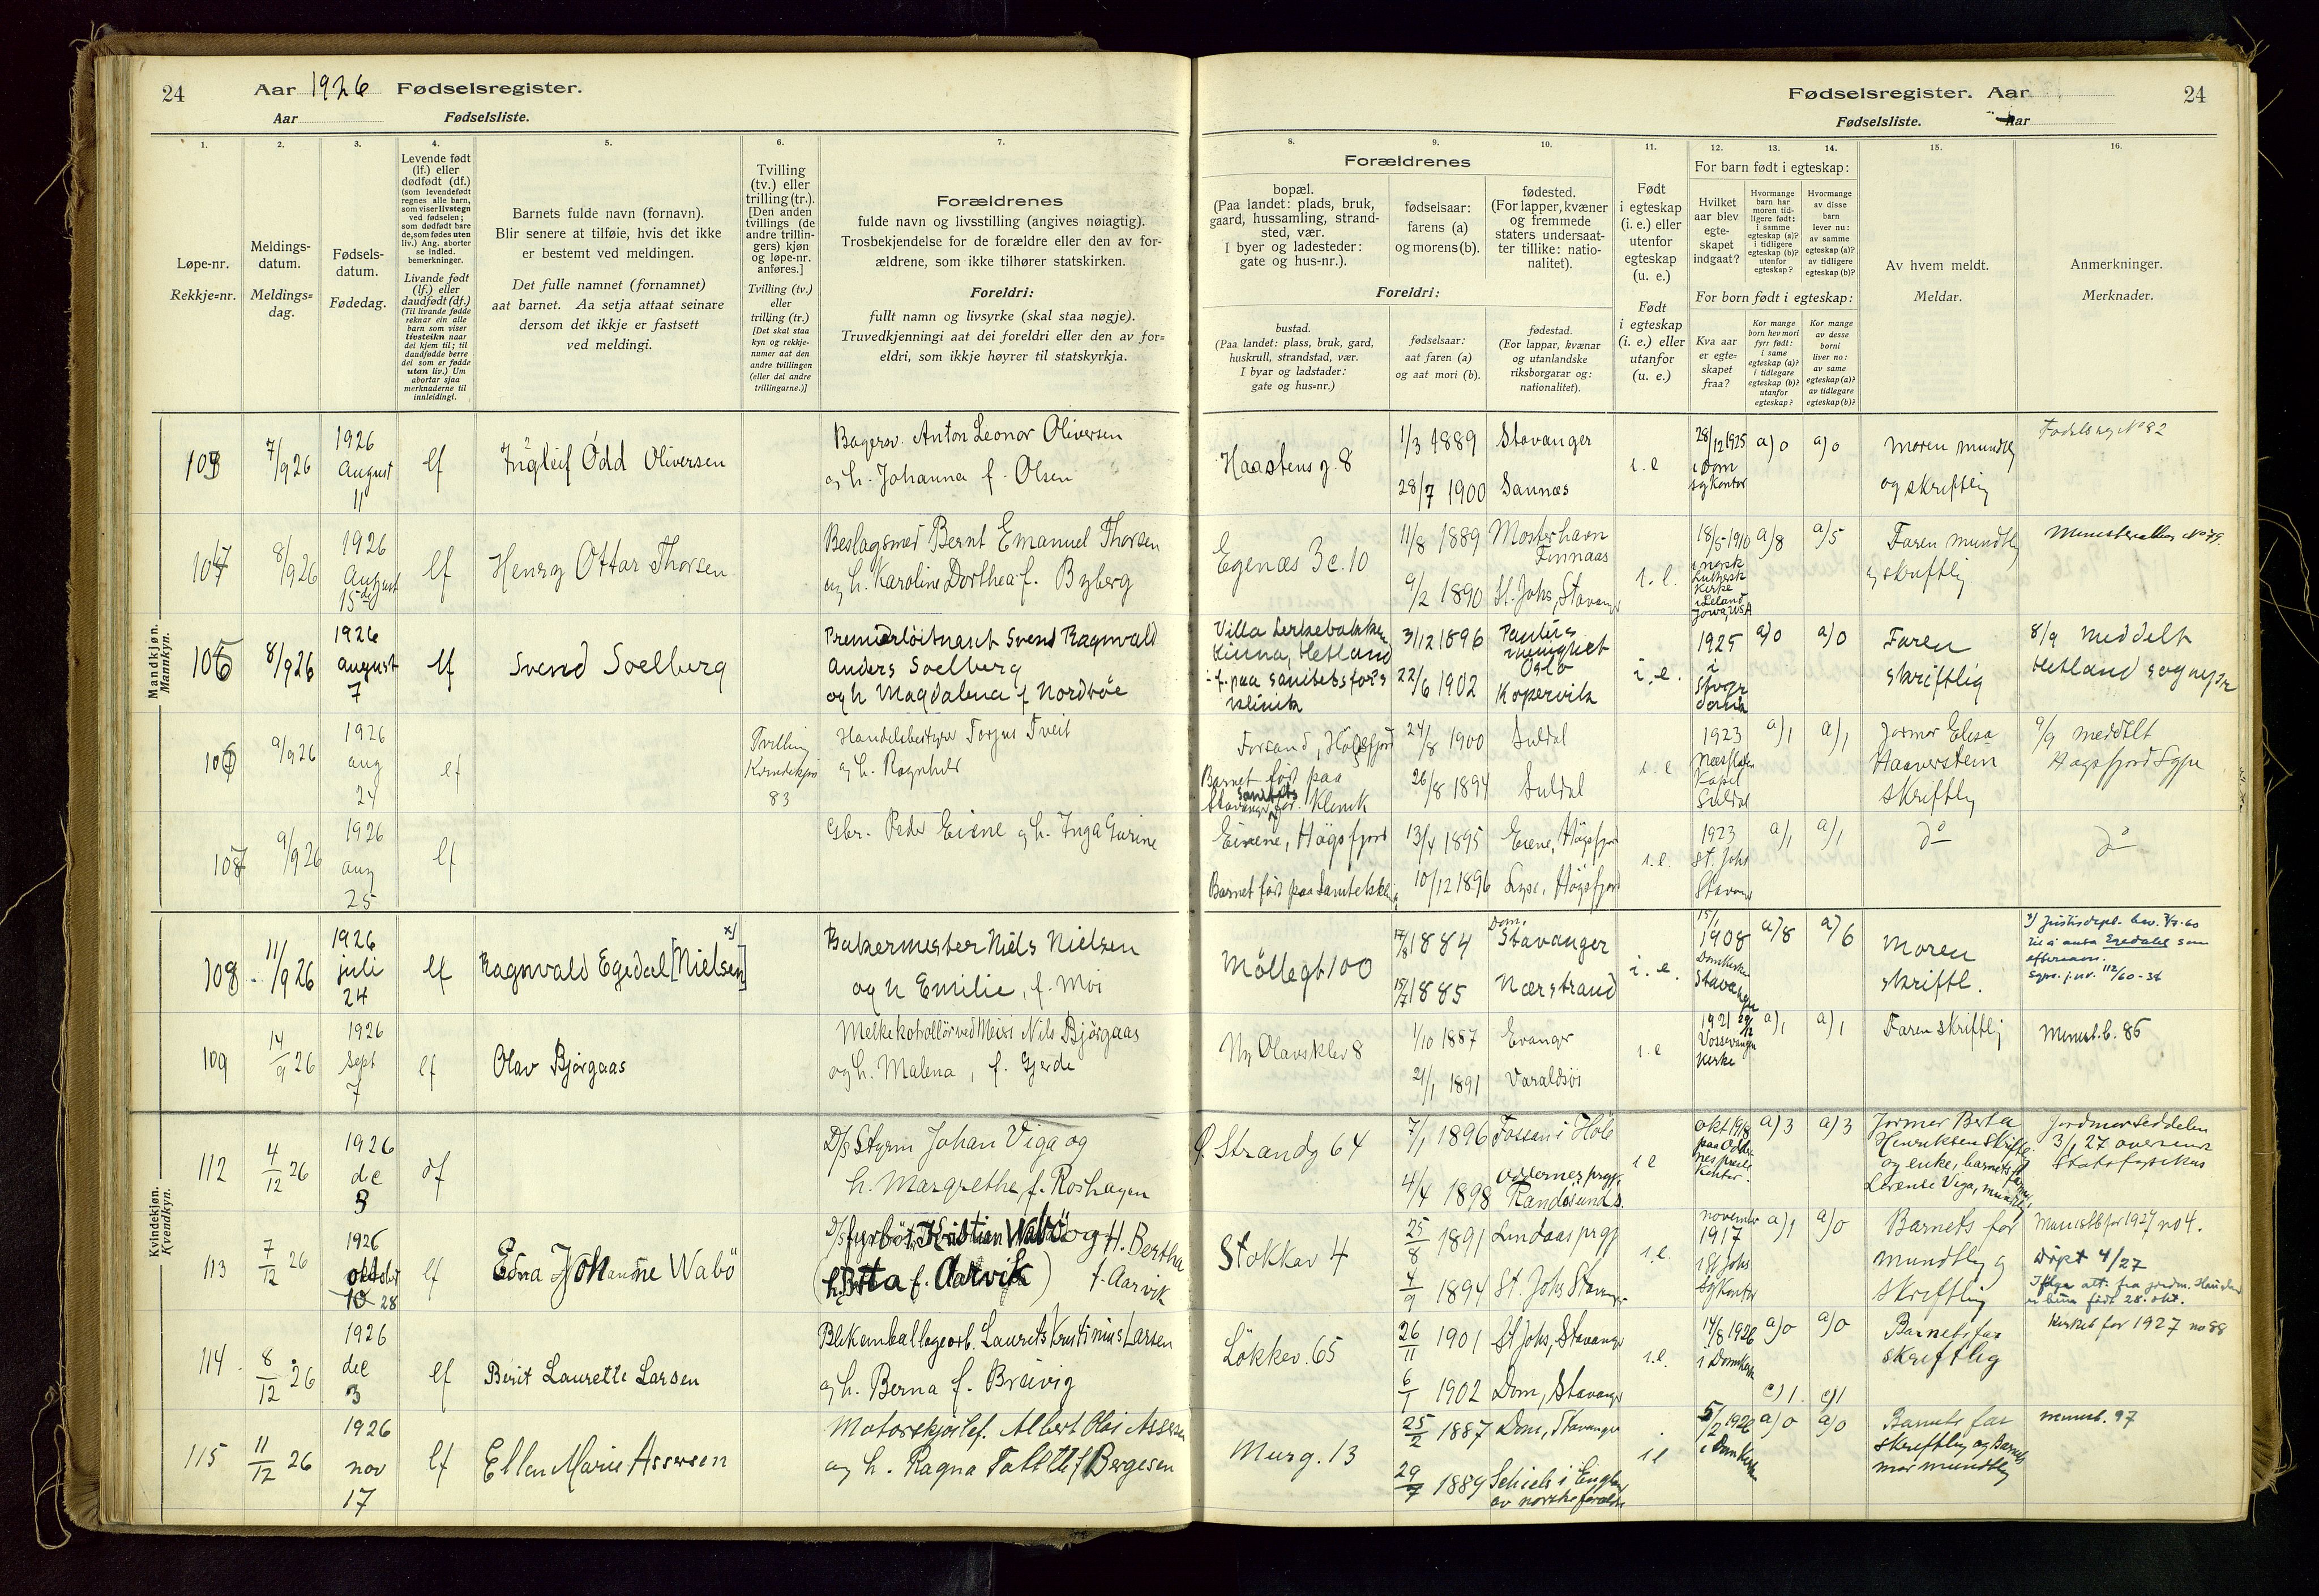 24 Aar 1926 Fødselsregister.
Aar Fødselsliste.
Fødselsregister. Aar 24
Fødselsliste. Aar
1. 2. 3. 4. 5. 6. 7.
Løpe-nr.
Rekkje=nr.
Meldings-
datum.
Meldings=
dag.
Fødsels-
datum.
Fødedag.
Levende født
(lf.) eller
dødfødt (df.)
(som levendefødt
regnes alle barn,
som viser livstegn
ved fødselen;
som dødfødt bare
de, som fødes uten
liv.) Ang. aborter
se indled.
bemerkninger.
Livande født
(lf.) eller
daudfødt (df.)
(Til livande fødde
reknar ein alle
barn som viser
livsteikn naar
dei kjem til; til
daudfødde berre
dei som er fødde
utan liv.) Um
abortar sjaa
merknaderne til
innleidingi.
Barnets fulde navn (fornavn).
Blir senere at tilføie, hvis det ikke
er bestemt ved meldingen.
Det fulle namnet (fornamnet)
aat barnet. Aa setja attaat seinare
dersom det ikkje er fastsett
ved meldingi.
Tvilling
(tv.) eller
trilling (tr.).
[Den anden
tvillings (de
andre trillin-
gers) kjøn
og løpe-nr.
anføres.]
Tvilling (tv.)
eller
trilling (tr.)
[Det skal staa
kyn og rekkje-
numer aat den
andre tvillingen
(eller dei andre
trillingarne.)]
Forældrenes
fulde navn og livsstilling (angives nøiagtig).
Trosbekjendelse for de forældre eller den av for-
ældrene, som ikke tilhører statskirken.
Foreldri:
fullt namn og livsyrke (skal staa nøgje).
Truvedkjenningi aat dei foreldri eller den av for=
eldri, som ikkje høyrer til statskyrkja.
8. 9. 10. 11. 12. 13. 14. 15. 16.
Forældrenes
bopæl.
(Paa landet: plads, bruk,
gaard, hussamling, strand-
sted, vær.
I byer og ladesteder:
gate og hus-nr.).
fødselsaar:
farens (a)
og morens (b).
fødested.
(For lapper, kvæner
og fremmede
staters undersaat-
ter tillike: natio-
nalitet).
Foreldri:
bustad.
(Paa landet: plass, bruk, gard,
huskrull, strandstad, vær.
I byar og ladstader:
gate og hus=nr.)
fødselsaar:
aat faren (a)
og aat mori (b).
fødestad.
(For lappar, kvænar
og utanlandske
riksborgarar og:
nationalitet).
Født
i egteskap
(i. e.) eller
utenfor
egteskap
(u. e.)
Født
i egteskap
(i. e.) eller
utanfor
(u. e.)
For barn født i egteskap:
Hvilket
aar blev
egte-
skapet
indgaat?
Hvormange
barn har
moren tid-
ligere født:
i samme
egteskap (a)?
i tidligere
egteskap (b)?
utenfor
egteskap?
Hvormange
av disse
barn
lever nu:
av samme
egteskap (a)?
av tidligere
egteskap (b)?
For born født i egteskap:
Kva aar
er egte=
skapet
fraa?
Kor mange
born hev mori
fyrr født:
i same
egteskap (a)?
i tidlegare
egteskap (b)?
utanfor
egteskap?
Kor mange
av desse
borni
liver no:
av same
egteskap (a)?
av tidlegare
egteskap (b)?
Av hvem meldt.
Meldar.
Anmerkninger.
Merknader.
Mandkjøn.
Mannkyn.
103 7/9 26 1926 August 11 lf Ingleif Odd Oliversen
Bagersv. Anton Leonor Oliversen
og h. Johanna f. Olsen
Haastens g. 8 1/3 1889 Stavanger
28/7 1900 Sannæs
i. e 28/12 1925 i Dom sgkontor a) 0 a) 0 Moren mundtlig
og skriftlig
104 8/9 26 1926 August 15de lf Henry Ottar Thorsen
Beslagsmed Bernt Emanuel Thorsen
og h. Karoline Dorthea f. Byberg
Egenæs 3e. 10 11/8 1889 Mosterhavn Finnaas
9/2 1890 St. Johs, Stavanger
i. e. 18/5 1910 i norsk Luthersk Kirke i Leland Jowa, USA a) 8 a) 5 Faren mundtlig
og skriftlig
105 8/9 26 1926 august 7 lf Svend Soelberg
Premierløitnant Svend Ragnvald
Anders Soelberg
og h Magdalena f Nordbøe
Villa Lerkebakken
Hetland
f. paa sanitetsfor's
klinik
31/12 1896 Paulus menighet Oslo
22/6 1902 Kopervik
i. e. 1925 i Stvgr a) 0 a) 0 Faren
skriftlig
8/9 Meddelt
Hetland sognepr
106 9/9 26 1926 aug 24 lf Tvilling Kvindekjøn 83
Handelsbestyrer Torjus Tveit
og h. Ragnhild
Forsand, Høgsfjord
Barnet født paa
Stavanger sanitets for. Klinik
24/8 1900 Suldal
26/8 1894 Suldal
i. e 1923 Næsflaten Kapel Suldal a) 1 a) 1 Jormor Elisa
Haaverstein
skriftlig
9/9 meddelt
Høgsfjord Sgpr
107 9/9 26 1926 aug 25 lf
Gbr. Peder Eiene og h. Inga Gurine
Eiene, Høgsfjord
Barnet født paa Sanitetsklinik
13/4 1895 Eiene, Høgsfjord
10/12 1896 Lyse, Høgsfjord
i. e. 1923 St. Johs Stavanger a) 1 a) 1 do do
108 11/9 26 1926 juli 24 lf Ragnvald Egedal [Nielsen] x)
Bakermester Niels Nielsen
og h Emilie, f. Moi
Møllegt 100 1884 Dom. Stavanger
1885 Nærstrand
i. e. 15/1 1908 Domkirken Stavanger a) 8 a) 6 Moren
skriftl.
x) Justisdept. bev.
til å anta Egedal som
efternavn.
109 14/9 26 1926 Sept 7 lf Olav Bjørgaas
Melkekotrollør ved Meieri Nils Bjørgaas
og h. Malena, f. Gjerde
Ny Olavsklev 8 1/10 1887 Evanger
21/1 1891 Varaldsøi
i. e 1921 Vossevangen Kirke a) 1 a) 1 Faren skriftlig Minist. b. 86
Kvindekjøn.
Kvendkyn.
112 4/12 26 1926 de 3 df
D/s Styrm Johan Viga og
h. Margrethe, f. Roshagen
Ø. Strandg 64 7/1 1896 Fossan i Høle
4/4 1898 Oddernes prgj. Randøsund s.
i e okt 1918 a) 3 a) 3 Jormor Berta
Henriksen skriftl.
og enke, barnets farmor,
Lerende Viga, mundtl.
Jordmorseddelen
3/1 27 oversendt
Statsfysikus
113 7/12 26 1926 oktober 10 28 lf Edna Johanne Wabö
D/s fyrbøter Kristian Wabö og H. Bertha
(h. Berta f. Aarvik) f. Aarvik
Stokkav 4 25/8 1891 Lindaas prgj
4/9 1894 St. Johs Stavanger
i. e. november 1917 i St Johs sgkontor a) 1 a) 0 Barnets far
mundtlig og
skriftlig
Ministb for 1927 no 4.
Døpt 4/27
Ifølge att. fra jordm.
28. okt.
114 8/12 26 1926 dec 3 lf Berit Laurette Larsen
Blikemballagearb. Laurits Kristinius Larsen
og h. Berna f. Breivig
Løkkev. 65 26/11 1901 St Johs, Stavanger
6/1 1902 Dom, Stavanger
i. e. 14/8 1926 i Domkirken a) 0 a) 0 c) 1. c) 1 Barnets far
skriftlig
for 1927 no 88
115 11/12 26 1926 nov 17 lf Ellen Marie Assersen
Motorskjøslef. Albert Olai Assersen
og h. Ragna Tallette f Bergesen
Murg. 13 25/2 1887 Dom, Stavanger
29/7 1889 Schiels i England
av norske forældre
i e 5/2 1926 i Domkirken a) 0 a) 0 Barnets far
skriftlig og Barnets
mor mundtlig
minist. 97